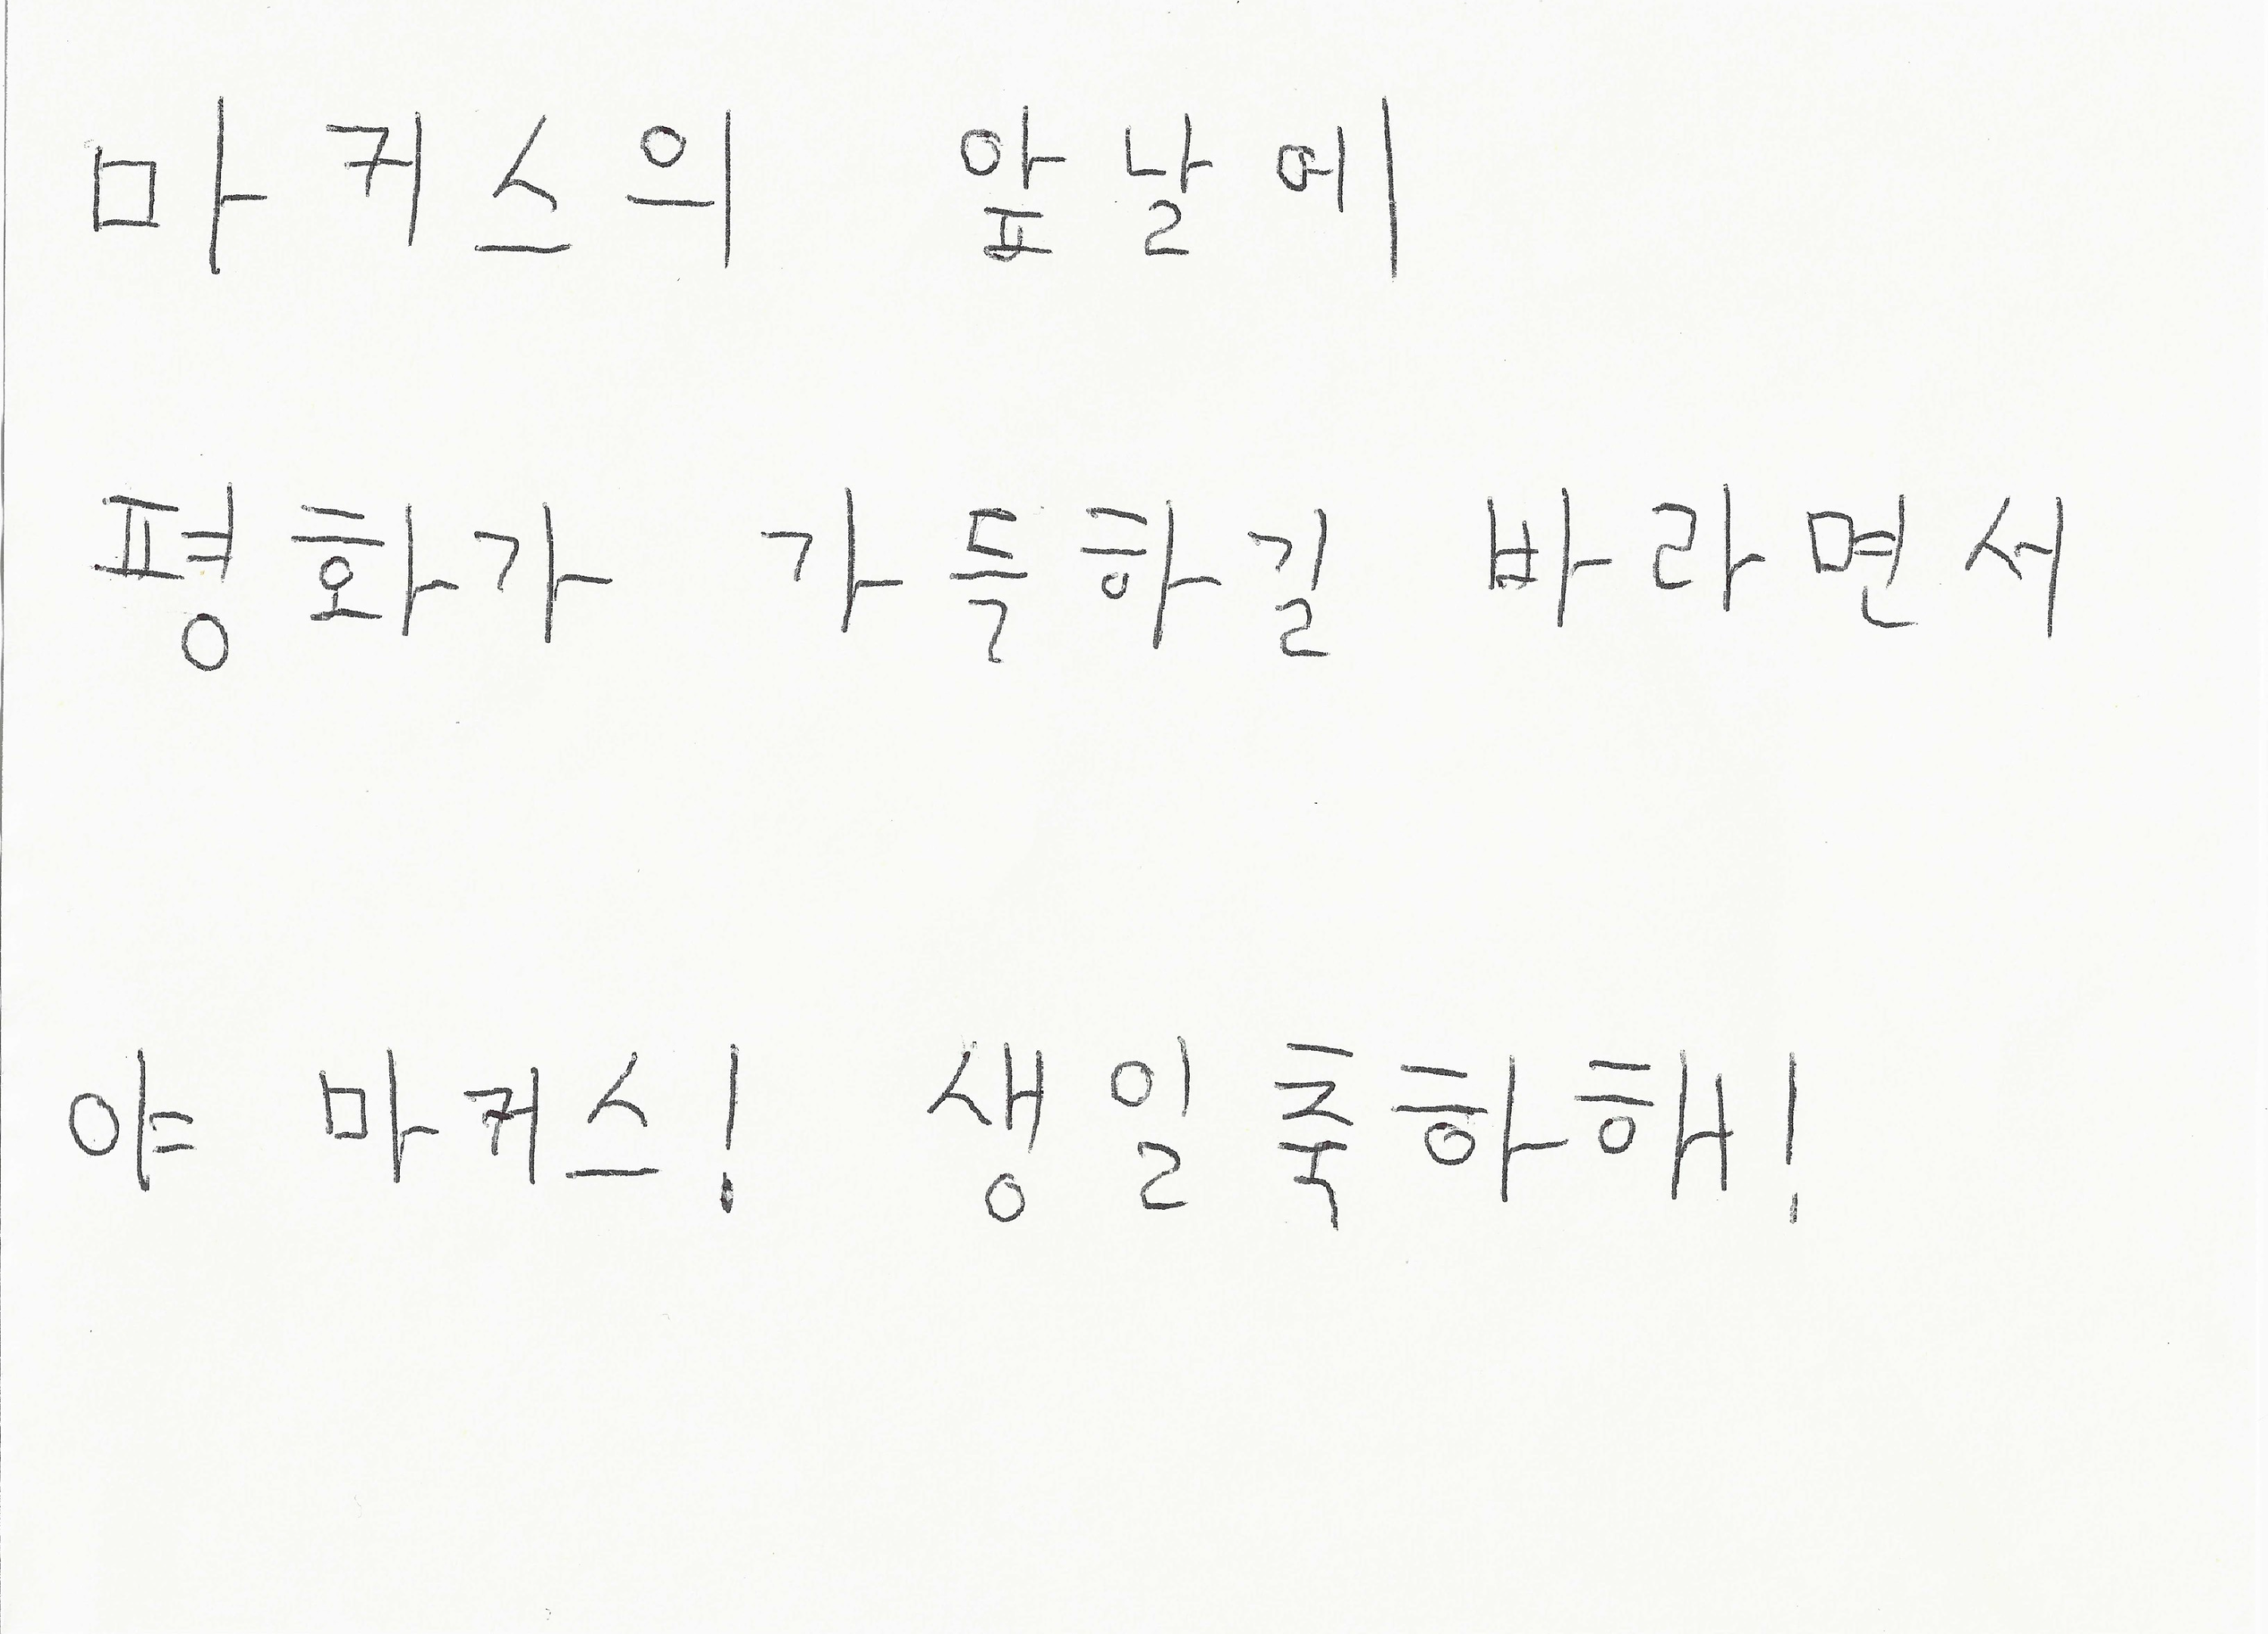 마커스의 앞날에
평화가 가득하길 바라면서
야 마커스! 생일축하해!